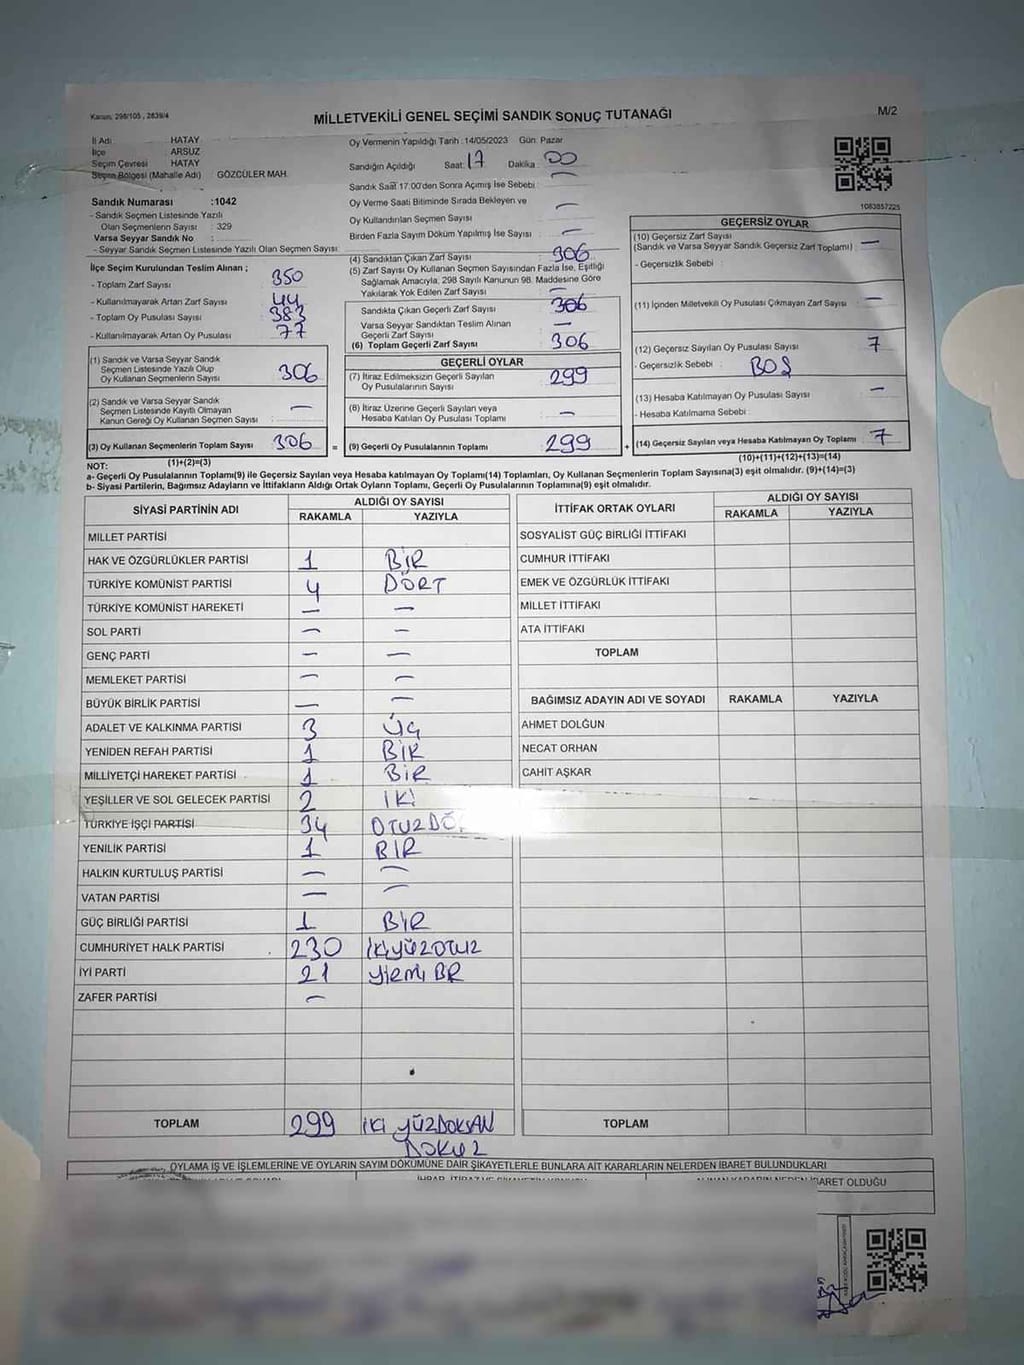 Kanun: 298/105 , 2839/4
MİLLETVEKİLİ GENEL SEÇİMİ SANDIK SONUÇ TUTANAĞI
M/2
İl Adı HATAY
İlçe ARSUZ
Seçim Çevresi HATAY
Seçim Bölgesi (Mahalle Adı) : GÖZCÜLER MAH.
Sandık Numarası :1042
- Sandık Seçmen Listesinde Yazılı
Olan Seçmenlerin Sayısı : 329
Varsa Seyyar Sandık No :
- Seyyar Sandık Seçmen Listesinde Yazılı Olan Seçmen Sayısı:
Oy Vermenin Yapıldığı Tarih :14/05/2023 Gün: Pazar
Sandığın Açıldığı Saat: 17 Dakika : 00
Sandık Saat 17.00'den Sonra Açımış İse Sebebi : —
Oy Verme Saati Bitiminde Sırada Bekleyen ve
Oy Kullandırılan Seçmen Sayısı : —
Birden Fazla Sayım Döküm Yapılmış İse Sayısı : —
1083857225
İlçe Seçim Kurulundan Teslim Alınan ;
- Toplam Zarf Sayısı : 350
- Kullanılmayarak Artan Zarf Sayısı : 44
- Toplam Oy Pusulası Sayısı : 383
- Kullanılmayarak Artan Oy Pusulası : 77
(1) Sandık ve Varsa Seyyar Sandık
Seçmen Listesinde Yazılı Olup
Oy Kullanan Seçmenlerin Sayısı : 306
(2) Sandık ve Varsa Seyyar Sandık
Seçmen Listesinde Kayıtlı Olmayan
Kanun Gereği Oy Kullanan Seçmen Sayısı : —
(3) Oy Kullanan Seçmenlerin Toplam Sayısı : 306 =
(1)+(2)=(3)
(4) Sandıktan Çıkan Zarf Sayısı : 306
(5) Zarf Sayısı Oy Kullanan Seçmen Sayısından Fazla İse, Eşitliği
Sağlamak Amacıyla, 298 Sayılı Kanunun 98. Maddesine Göre
Yakılarak Yok Edilen Zarf Sayısı : —
Sandıkta Çıkan Geçerli Zarf Sayısı : 306
Varsa Seyyar Sandıktan Teslim Alınan
Geçerli Zarf Sayısı : —
(6) Toplam Geçerli Zarf Sayısı : 306
GEÇERLİ OYLAR
(7) İtiraz Edilmeksizin Geçerli Sayılan
Oy Pusulalarının Sayısı : 299
(8) İtiraz Üzerine Geçerli Sayılan veya
Hesaba Katılan Oy Pusulası Toplamı : —
(9) Geçerli Oy Pusulalarının Toplamı : 299 +
GEÇERSİZ OYLAR
(10) Geçersiz Zarf Sayısı
(Sandık ve Varsa Seyyar Sandık Geçersiz Zarf Toplamı) : —
- Geçersizlik Sebebi :
(11) İçinden Milletvekili Oy Pusulası Çıkmayan Zarf Sayısı : —
(12) Geçersiz Sayılan Oy Pusulası Sayısı : 7
- Geçersizlik Sebebi : BOŞ
(13) Hesaba Katılmayan Oy Pusulası Sayısı : —
- Hesaba Katılmama Sebebi :
(14) Geçersiz Sayılan veya Hesaba Katılmayan Oy Toplamı : 7
(10)+(11)+(12)+(13)=(14)
NOT:
a- Geçerli Oy Pusulalarının Toplamı(9) ile Geçersiz Sayılan veya Hesaba katılmayan Oy Toplamı(14) Toplamları, Oy Kullanan Seçmenlerin Toplam Sayısına(3) eşit olmalıdır. (9)+(14)=(3)
b- Siyasi Partilerin, Bağımsız Adayların ve İttifakların Aldığı Ortak Oyların Toplamı, Geçerli Oy Pusulalarının Toplamına(9) eşit olmalıdır.
SİYASİ PARTİNİN ADI ALDIĞI OY SAYISI
RAKAMLA YAZIYLA
MİLLET PARTİSİ
HAK VE ÖZGÜRLÜKLER PARTİSİ 1 BİR
TÜRKİYE KOMÜNİST PARTİSİ 4 DÖRT
TÜRKİYE KOMÜNİST HAREKETİ — —
SOL PARTİ — —
GENÇ PARTİ — —
MEMLEKET PARTİSİ — —
BÜYÜK BİRLİK PARTİSİ — —
ADALET VE KALKINMA PARTİSİ 3 ÜÇ
YENİDEN REFAH PARTİSİ 1 BİR
MİLLİYETÇİ HAREKET PARTİSİ 1 BİR
YEŞİLLER VE SOL GELECEK PARTİSİ 2 İKİ
TÜRKİYE İŞÇİ PARTİSİ 34 OTUZDÖ
YENİLİK PARTİSİ 1 BİR
HALKIN KURTULUŞ PARTİSİ — —
VATAN PARTİSİ — —
GÜÇ BİRLİĞİ PARTİSİ 1 BİR
CUMHURİYET HALK PARTİSİ 230 İKİYÜZOTUZ
İYİ PARTİ 21 YİRMİ BR
ZAFER PARTİSİ —
TOPLAM 299 İKİ YÜZDOKSAN
DOKUZ
İTTİFAK ORTAK OYLARI ALDIĞI OY SAYISI
RAKAMLA YAZIYLA
SOSYALİST GÜÇ BİRLİĞİ İTTİFAKI
CUMHUR İTTİFAKI
EMEK VE ÖZGÜRLÜK İTTİFAKI
MİLLET İTTİFAKI
ATA İTTİFAKI
TOPLAM
BAĞIMSIZ ADAYIN ADI VE SOYADI RAKAMLA YAZIYLA
AHMET DOLĞUN
NECAT ORHAN
CAHİT AŞKAR
TOPLAM
OYLAMA İŞ VE İŞLEMLERİNE VE OYLARIN SAYIM DÖKÜMÜNE DAİR ŞİKAYETLERLE BUNLARA AİT KARARLARIN NELERDEN İBARET BULUNDUKLARI
İBARET OLDUĞU